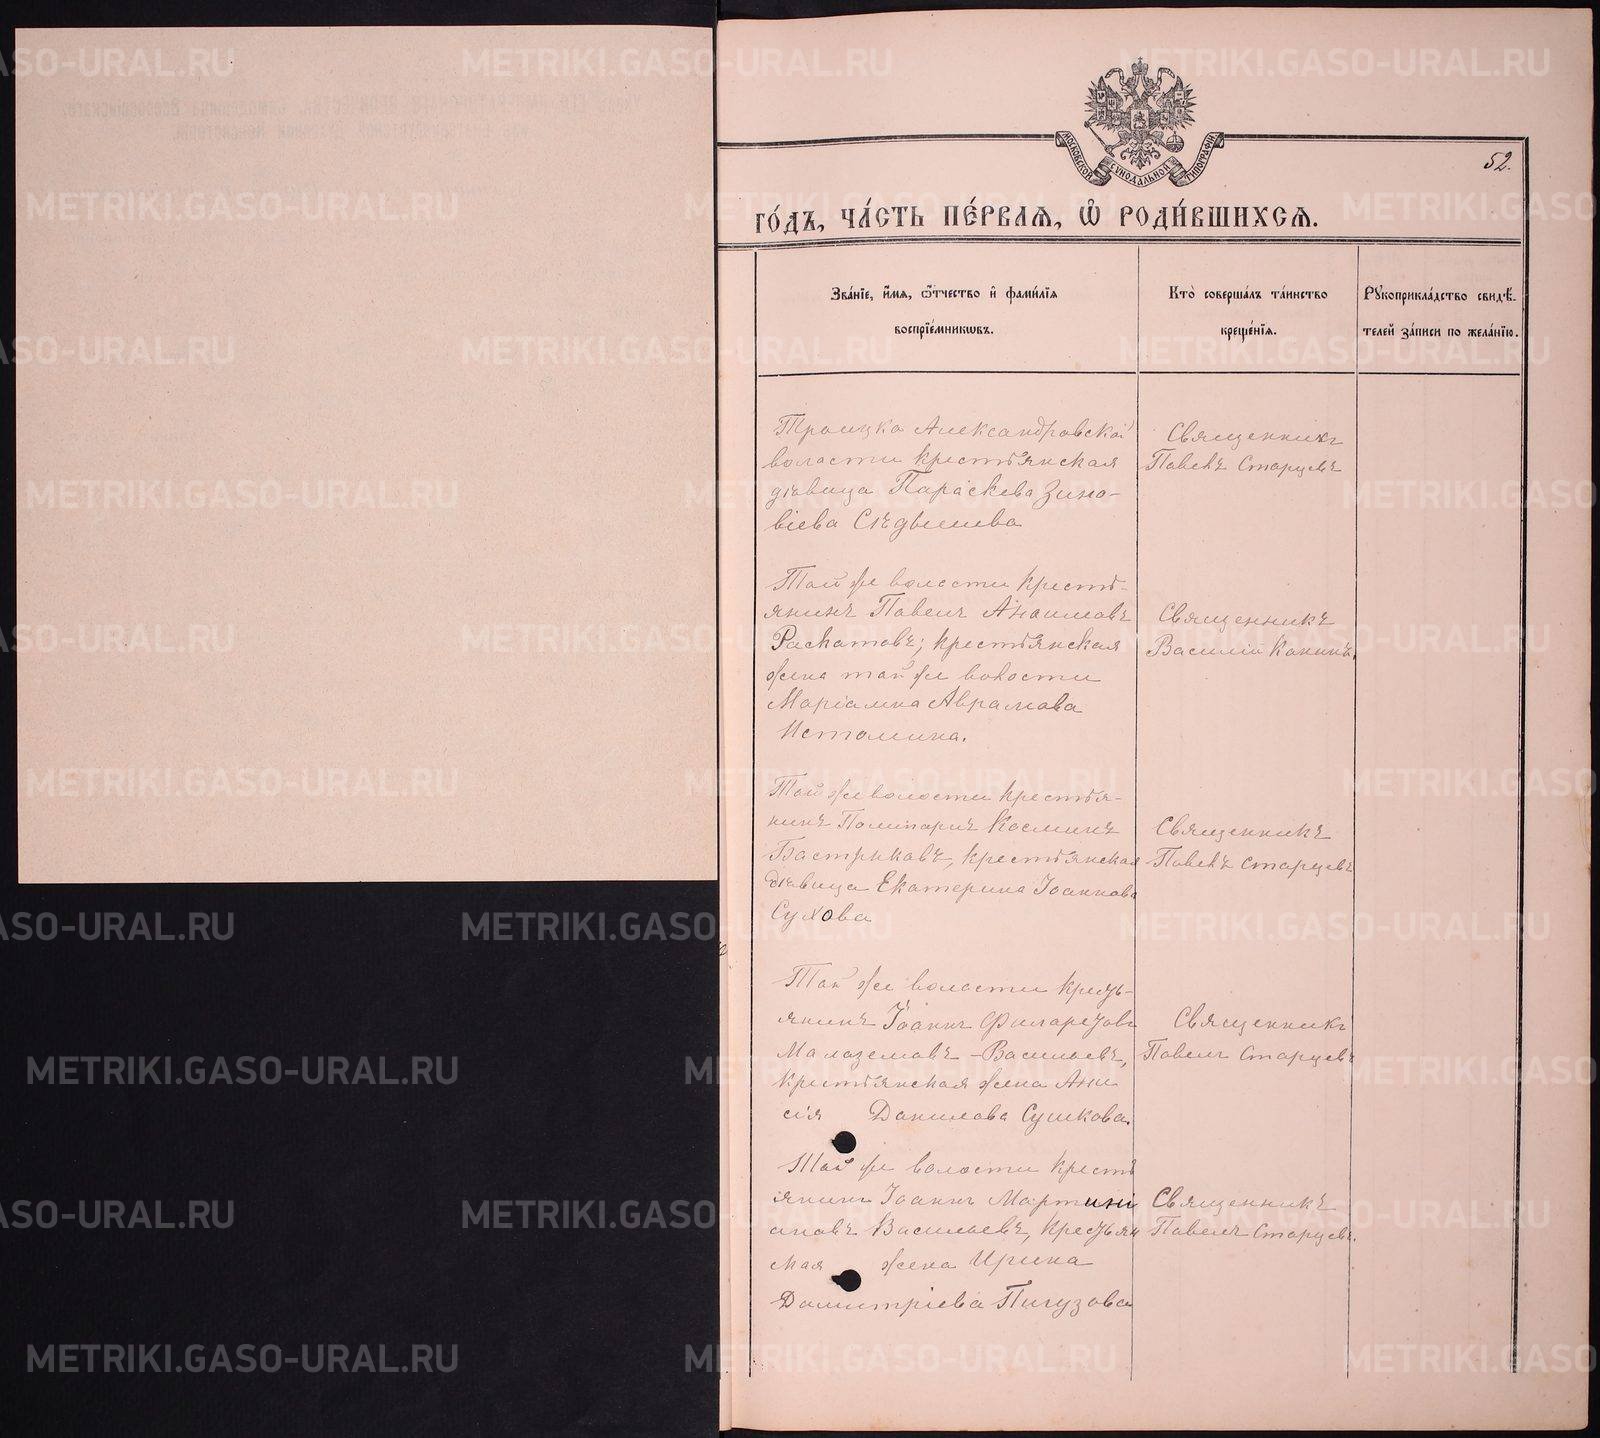 52.
МОСКОВСКОЙ СУНОДАЛЬНОЙ ТИПОГРАФІИ.
го́дъ, ча́сть пе́рваѧ, ѡ҆ роди́вшихсѧ.
Зва́нїе, и҆́мѧ, ѻ҆́тчество и҆ фами́лїѧ
воспрїе́мникѡвъ.
Кто̀ соверша́лъ та́инство
креще́нїѧ.
Рꙋкоприкла́дство свидѣ́-
телей за́писи по жела́нїю.
Троицко Александровской
волости крестьянская
дѣвица Параскева Зино-
віева
Священникъ
Павелъ Старцевъ
Той же волости кресть-
янинъ Павелъ
Раскатовъ; крестьянская
жена той же волости
Маріамна Аврамова
Истомина.
Священникъ
Василій Конинъ.
Той же волости крестья-
нинъ Поликарпъ Косминъ
Бастриковъ, крестьянская
дѣвица Екатерина Іоаннова
Сухова
Священникъ
Павелъ Старцевъ
Той же волости кресть-
янинъ Іоаннъ Филаретовъ
Малоземовъ-Васильевъ,
крестьянская жена Ани
сія Данилова Сушкова.
Священникъ
Павелъ Старцевъ
Той же волости кресть
янинъ Іоаннъ Мартини
ановъ Васильевъ, крестьян
ская жена Ирина
Димитріева Пигузова
Священникъ
Павелъ Старцевъ.
METRIKI.GASO-URAL.RU